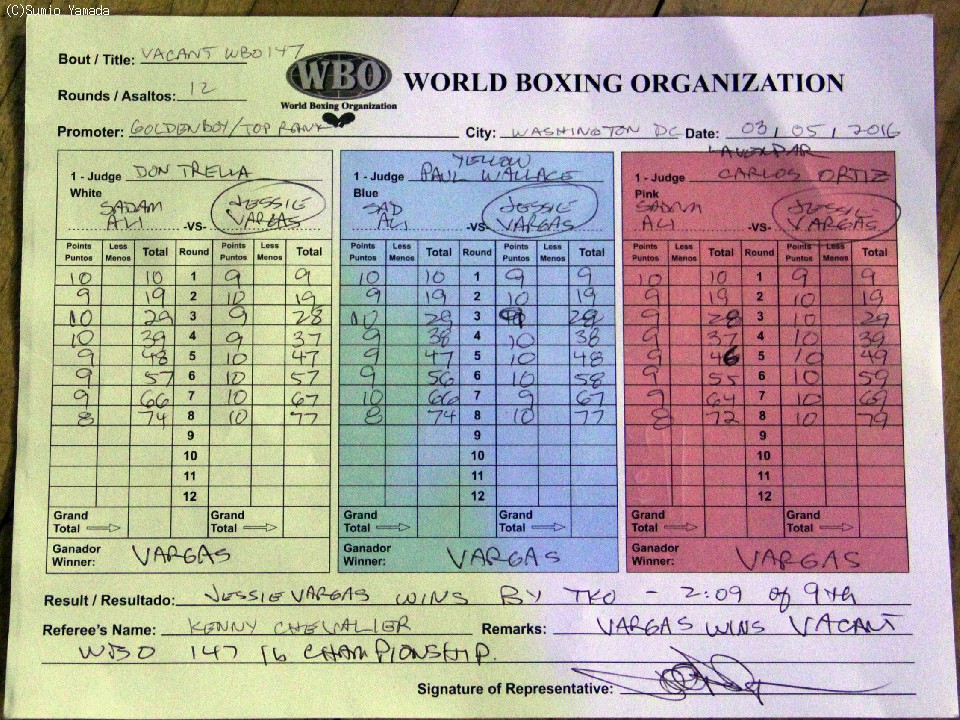 (C)Sumio Yamada
Bout / Title: VACANT WBO 147
WBO
World Boxing Organization
WORLD BOXING ORGANIZATION
Rounds / Asaltos: 12
Promoter: GOLDENBOY/TOP RANK City: WASHINGTON DC Date: 03/05/2016
1 - Judge DON TRELLA
White
SADAM ALI -VS- JESSIE VARGAS
Points Puntos Less Menos Total Round Points Puntos Less Menos Total
10 10 1 9 9
9 19 2 10 19
10 29 3 9 28
10 39 4 9 37
9 48 5 10 47
9 57 6 10 57
9 66 7 10 67
8 74 8 10 77
9
10
11
12
Grand Total Grand Total
Ganador Winner: VARGAS
YELLOW
1 - Judge PAUL WALLACE
Blue
SAD ALI -VS- JESSIE VARGAS
Points Puntos Less Menos Total Round Points Puntos Less Menos Total
10 10 1 9 9
9 19 2 10 19
10 29 3 9 28
9 38 4 10 38
9 47 5 10 48
9 56 6 10 58
10 66 7 9 67
8 74 8 10 77
9
10
11
12
Grand Total Grand Total
Ganador Winner: VARGAS
1 - Judge CARLOS ORTIZ
Pink
SADAM ALI -VS- JESSIE VARGAS
Points Puntos Less Menos Total Round Points Puntos Less Menos Total
10 10 1 9 9
9 19 2 10 19
9 28 3 10 29
9 37 4 10 39
9 46 5 10 49
9 55 6 10 59
9 64 7 10 69
8 72 8 10 79
9
10
11
12
Grand Total Grand Total
Ganador Winner: VARGAS
Result / Resultado: JESSIE VARGAS WINS BY TKO - 2:09 of 9th
Referee's Name: KENNY CHEVALIER Remarks: VARGAS WINS VACANT
WBO 147 lb CHAMPIONSHIP.
Signature of Representative: